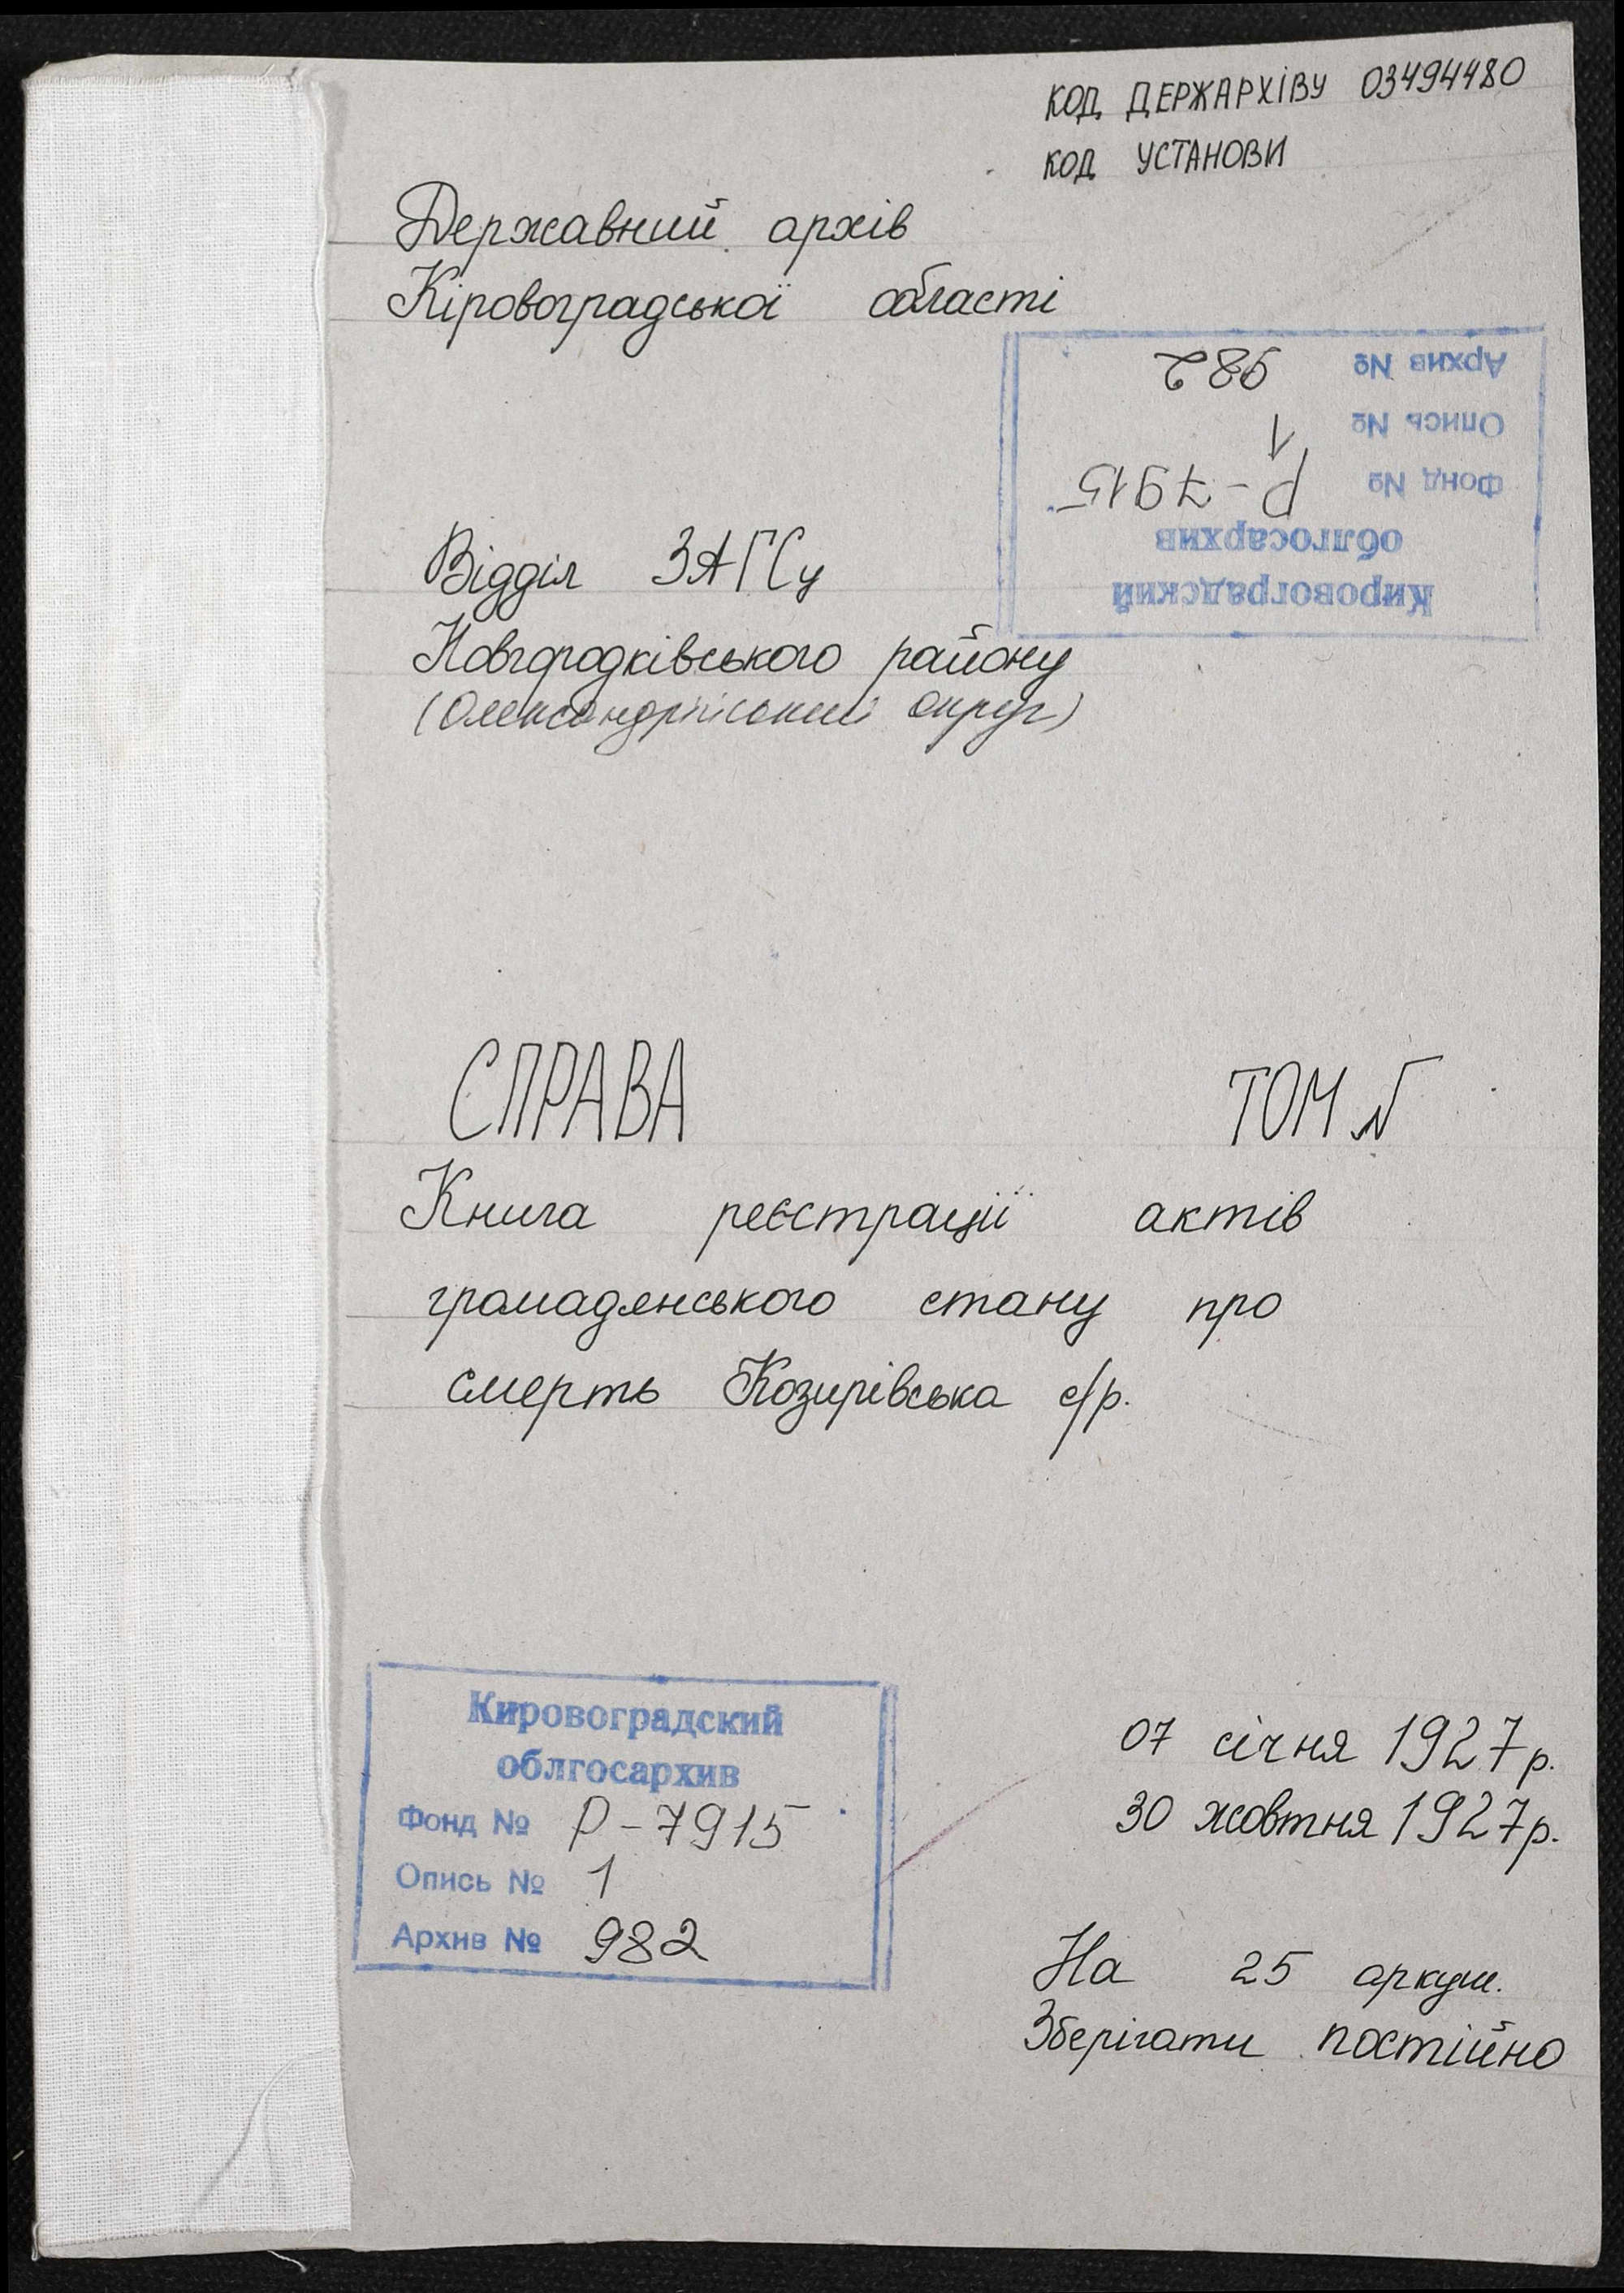 КОД ДЕРЖАРХІВУ 03494480
КОД УСТАНОВИ
Державний архів
Кіровоградської області
Кировоградский
облгосархив
Фонд № Р-7915
Опись № 1
Архив № 982
Відділ ЗАГСу
Новгородківського району
(Олександрійський округ)
СПРАВА ТОМ №
Книга реєстрації актів
громадянського стану про
смерть Козирівська с/р.
Кировоградский
облгосархив
Фонд № Р-7915
Опись № 1
Архив № 982
07 січня 1927р.
30 жовтня 1927р.
На 25 аркуш.
Зберігати постійно